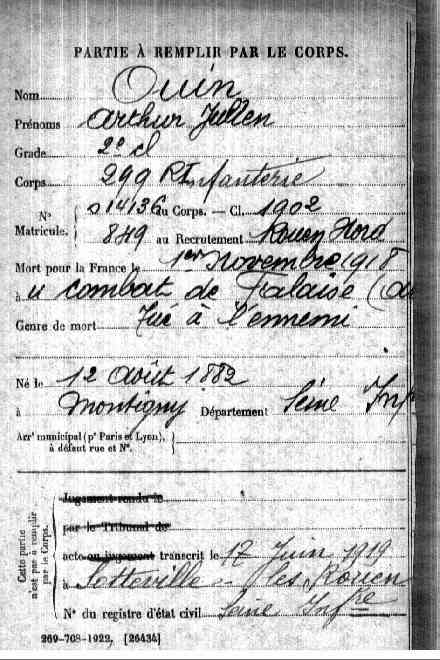 PARTIE À REMPLIR PAR LE CORPS.
Nom Ouin
Prénoms Arthur Julien
Grade 2e cl
Corps 299 RInfanterie
N° Matricule. 014136 au Corps. — Cl. 1902
849 au Recrutement Rouen Nord
Mort pour la France le 1er novembre 1918
à u combat de Falaise (
Genre de mort Tué à l'ennemi
Né le 12 Août 1882
à Montigny Département Seine Inf
Arrt municipal (pr Paris et Lyon),
à défaut rue et N°.
Cette partie n'est pas à remplir par le Corps.
Jugement rendu le
par le Tribunal de
acte ou jugement transcrit le 17 Juin 1919
à Sotteville - les Rouen
N° du registre d'état civil Seine Infre
269-708-1922. [26434]